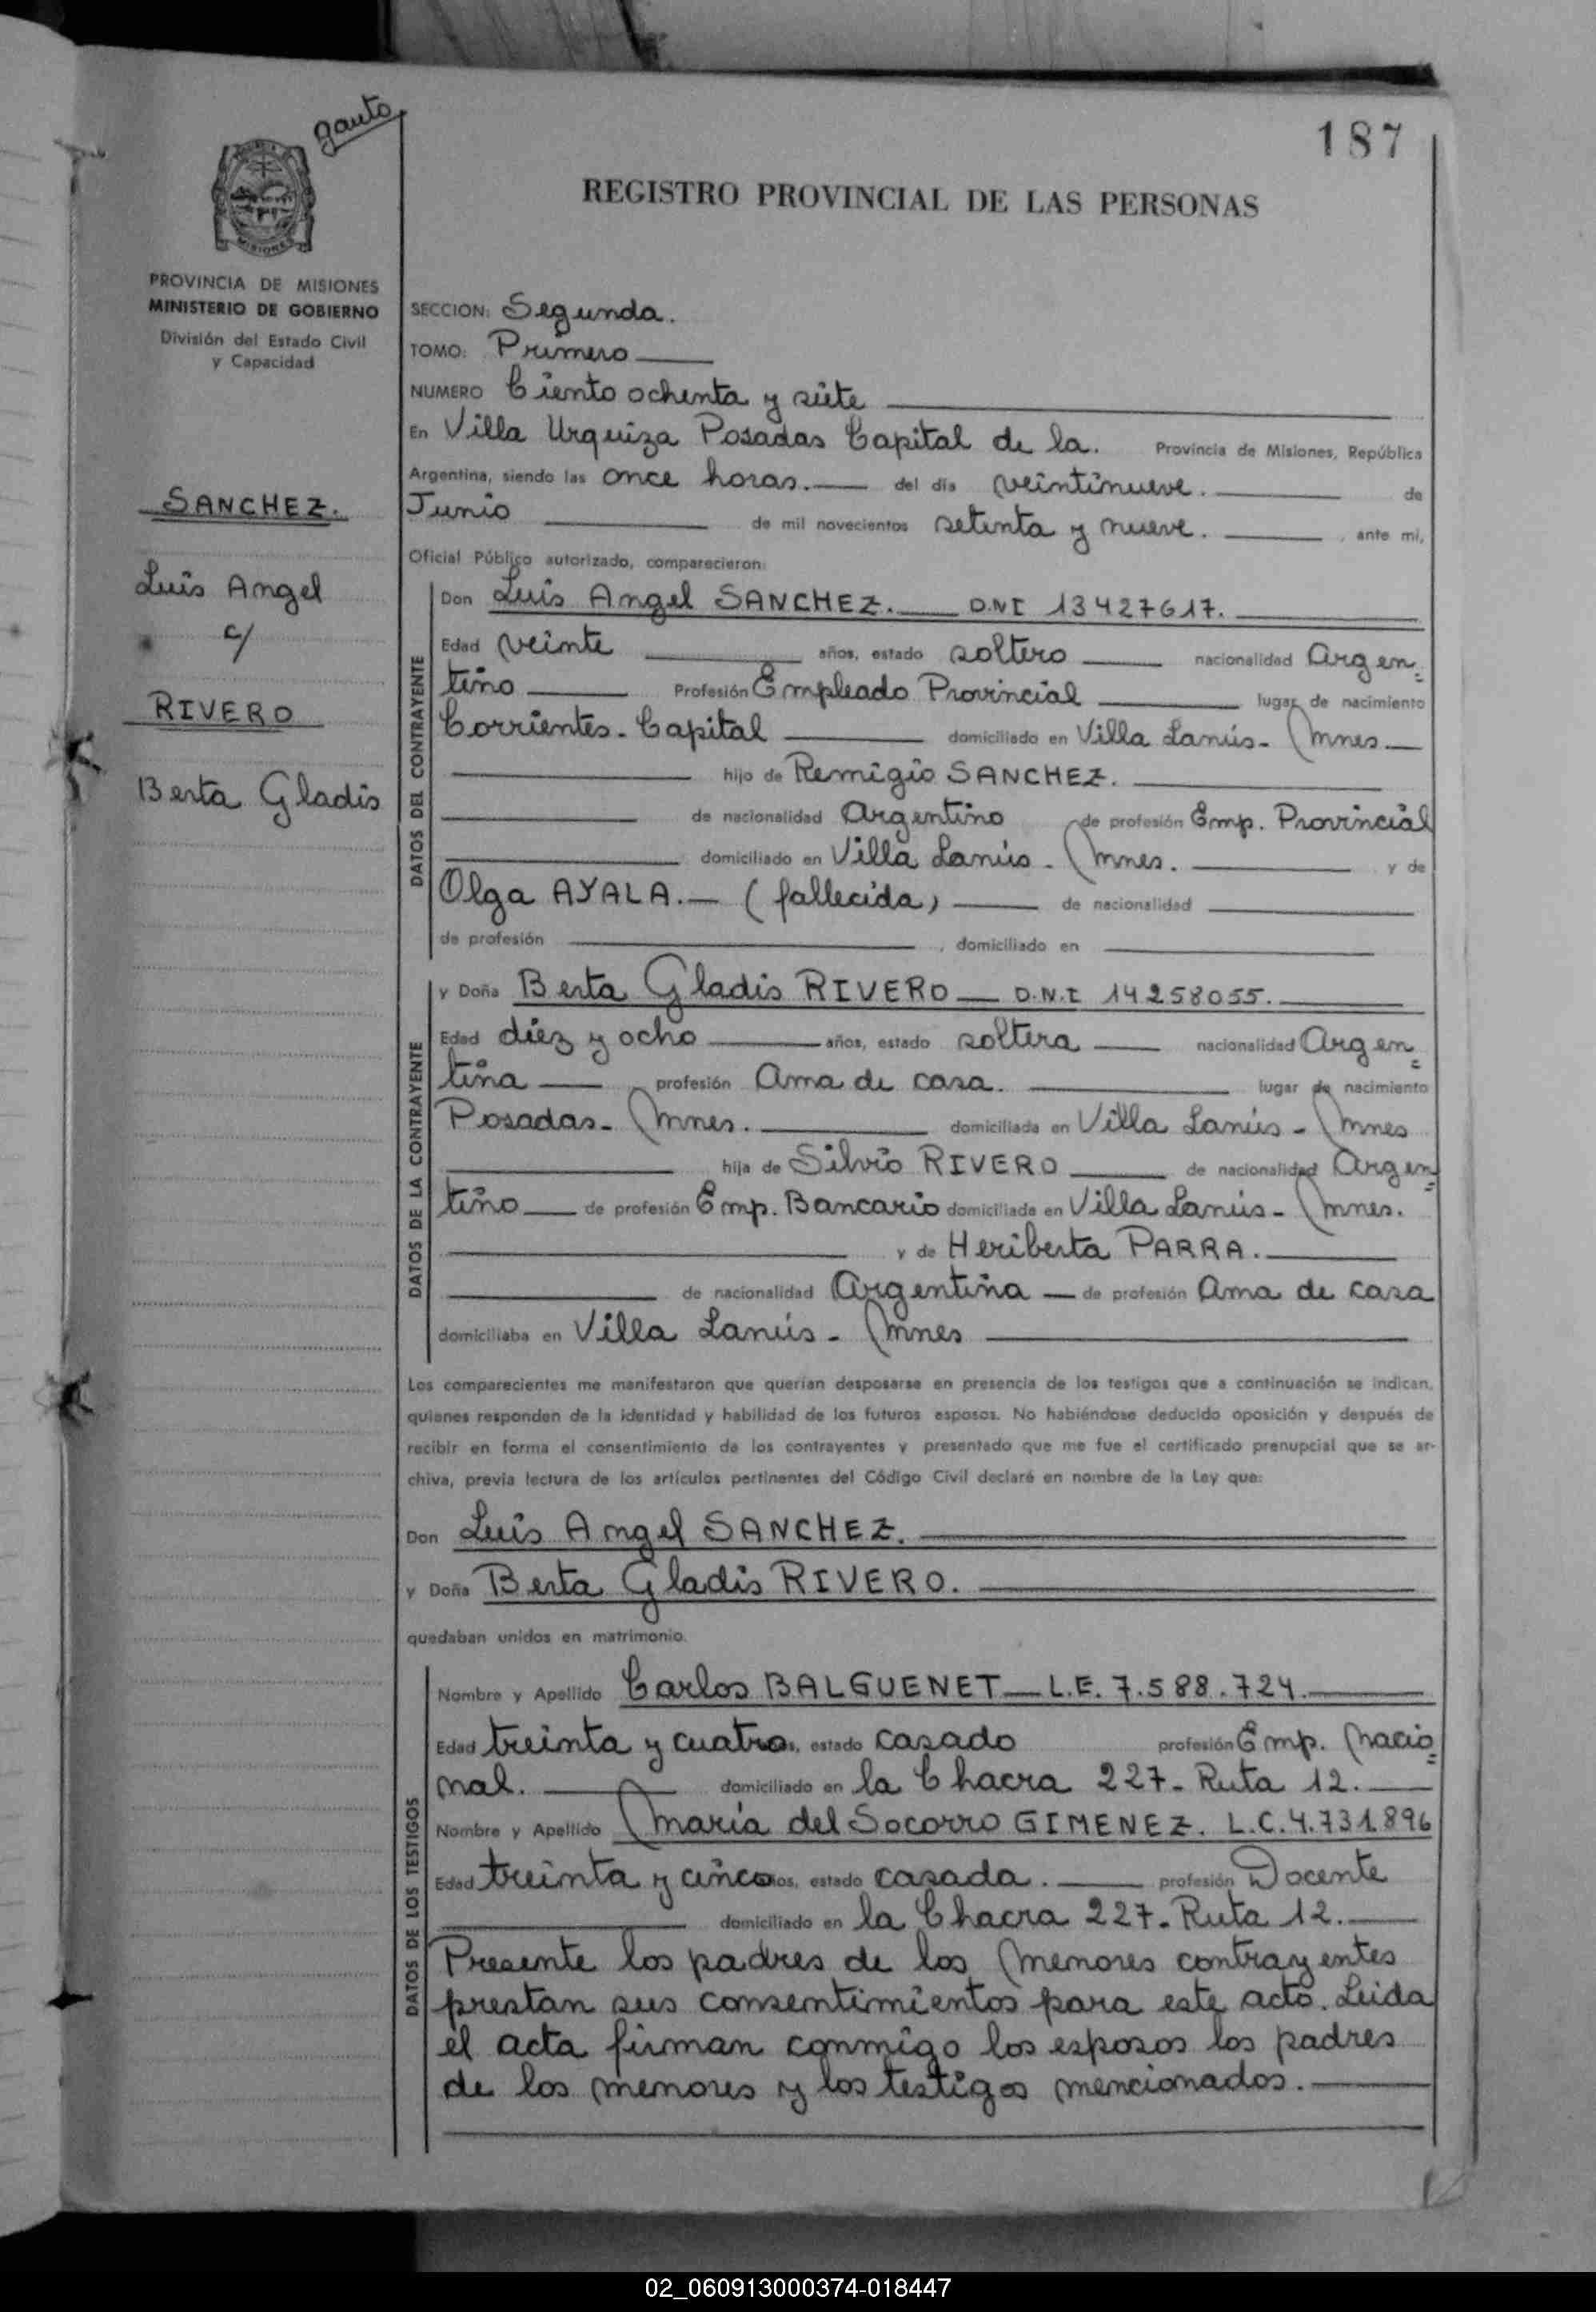 gauto
187
REGISTRO PROVINCIAL DE LAS PERSONAS
MISIONES
PROVINCIA DE MISIONES
MINISTERIO DE GOBIERNO
División del Estado Civil
y Capacidad
SANCHEZ.
Luis Angel
c/
RIVERO
Berta Gladis
SECCION: Segunda.
TOMO: Primero
NUMERO Ciento ochenta y siete
En Villa Urquiza Posadas Capital de la. Provincia de Misiones, República
Argentina, siendo las once horas. del día veintinueve. de
Junio de mil novecientos setenta y nueve. , ante mi,
Oficial Público autorizado, comparecieron:
DATOS DEL CONTRAYENTE
Don Luis Angel SANCHEZ. D.N.I 13427617.
Edad veinte años, estado soltero nacionalidad Argen
tino Profesión Empleado Provincial lugar de nacimiento
Corrientes - Capital domiciliado en Villa Lanús - Mnes
hijo de Remigio SANCHEZ.
de nacionalidad Argentino de profesión Emp. Provincial
domiciliado en Villa Lanús - Mnes. y de
Olga AYALA. (fallecida) de nacionalidad
de profesión , domiciliado en
DATOS DE LA CONTRAYENTE
y Doña Berta Gladis RIVERO D.N.I 14258055.
Edad diez y ocho años, estado soltera nacionalidad Argen
tina profesión Ama de casa. lugar de nacimiento
Posadas - Mnes. domiciliada en Villa Lanús - Mnes
hija de Silvio RIVERO de nacionalidad Argen
tino de profesión Emp. Bancario domiciliada en Villa Lanús - Mnes.
y de Heriberta PARRA.
de nacionalidad Argentina de profesión Ama de casa
domiciliaba en Villa Lanús - Mnes
Los comparecientes me manifestaron que querían desposarse en presencia de los testigos que a continuación se indican,
quienes responden de la identidad y habilidad de los futuros esposos. No habiéndose deducido oposición y después de
recibir en forma el consentimiento de los contrayentes y presentado que me fue el certificado prenupcial que se ar-
chiva, previa lectura de los artículos pertinentes del Código Civil declaré en nombre de la Ley que:
Don Luis Angel SANCHEZ.
y Doña Berta Gladis RIVERO.
quedaban unidos en matrimonio.
DATOS DE LOS TESTIGOS
Nombre y Apellido Carlos BALGUENET L.E. 7.588.724.
Edad treinta y cuatro, estado casado profesión Emp. Nacio
nal. domiciliado en la Chacra 227 - Ruta 12.
Nombre y Apellido María del Socorro GIMENEZ. L.C. 4.731.896
Edad treinta y cinco os, estado casada. profesión Docente
domiciliado en la Chacra 227 - Ruta 12.
Presente los padres de los menores contrayentes
prestan sus consentimientos para este acto. Leida
el acta firman conmigo los esposos los padres
de los menores y los testigos mencionados.
02_060913000374-018447